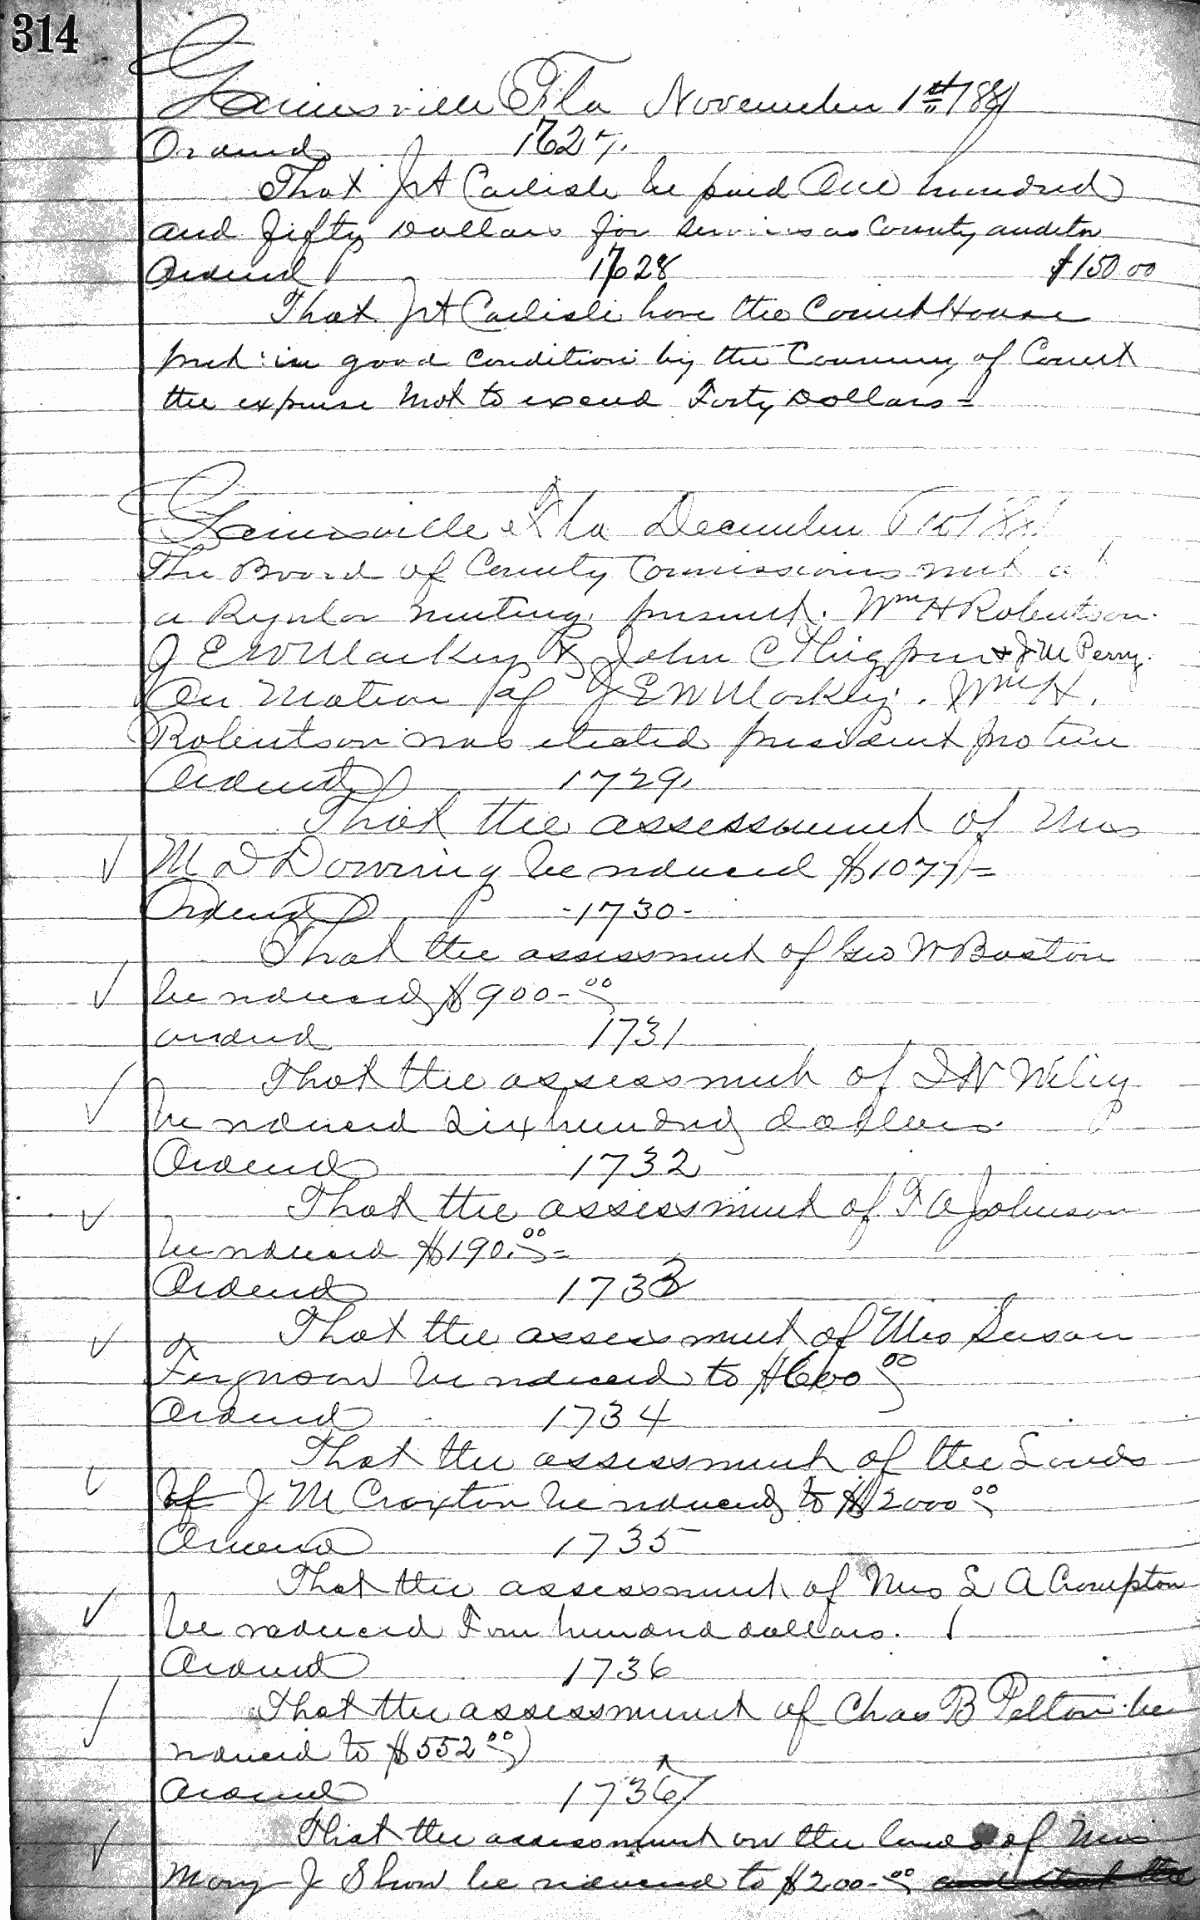 314
Gainesville Fla November 1st 188
Ordered 1627
That J A Carlisle be paid One hundred
and fifty Dollars for services as County auditor
Ordered 1628 $150 00
That J A Carlisle have the Court House
put in good condition by the of Court
the expense not to exceed Forty Dollars =
Gainesville Fla December
The Board of County Commissioners met at
a Regular meeting. present. Wm H Robertson
J E W Markey John C Thigpin & J M Perry.
On Motion of J E W Markey. Wm H.
Robertson was elected president pro tem
Ordered 1729
That the assessment of Mrs
M D Downing be reduced $1077/=
Ordered -1730-
That the assessment of Geo W Baston
be reduced $900-00
ordered 1731
That the assessment of I N Wiley
be reduced six hundred dollars.
Ordered 1732
That the assessment of F A Johnson
be reduced $190.00=
Ordered 1733
That the assessment of Mrs Susan
Ferguson be reduced to $600 00
Ordered 1734
That the assessment of the Lands
of J M Croxton be reduced to $2000 00
Ordered 1735
That the assessment of Mrs L A Crompton
be reduced Four hundred dollars.
Ordered 1736
That the assessment of Chas B Pelton be
reduced to $552 00
Ordered 1737
That the assessment on the lands of Mrs
Mary J Shaw be reduced to $200-00 and that the